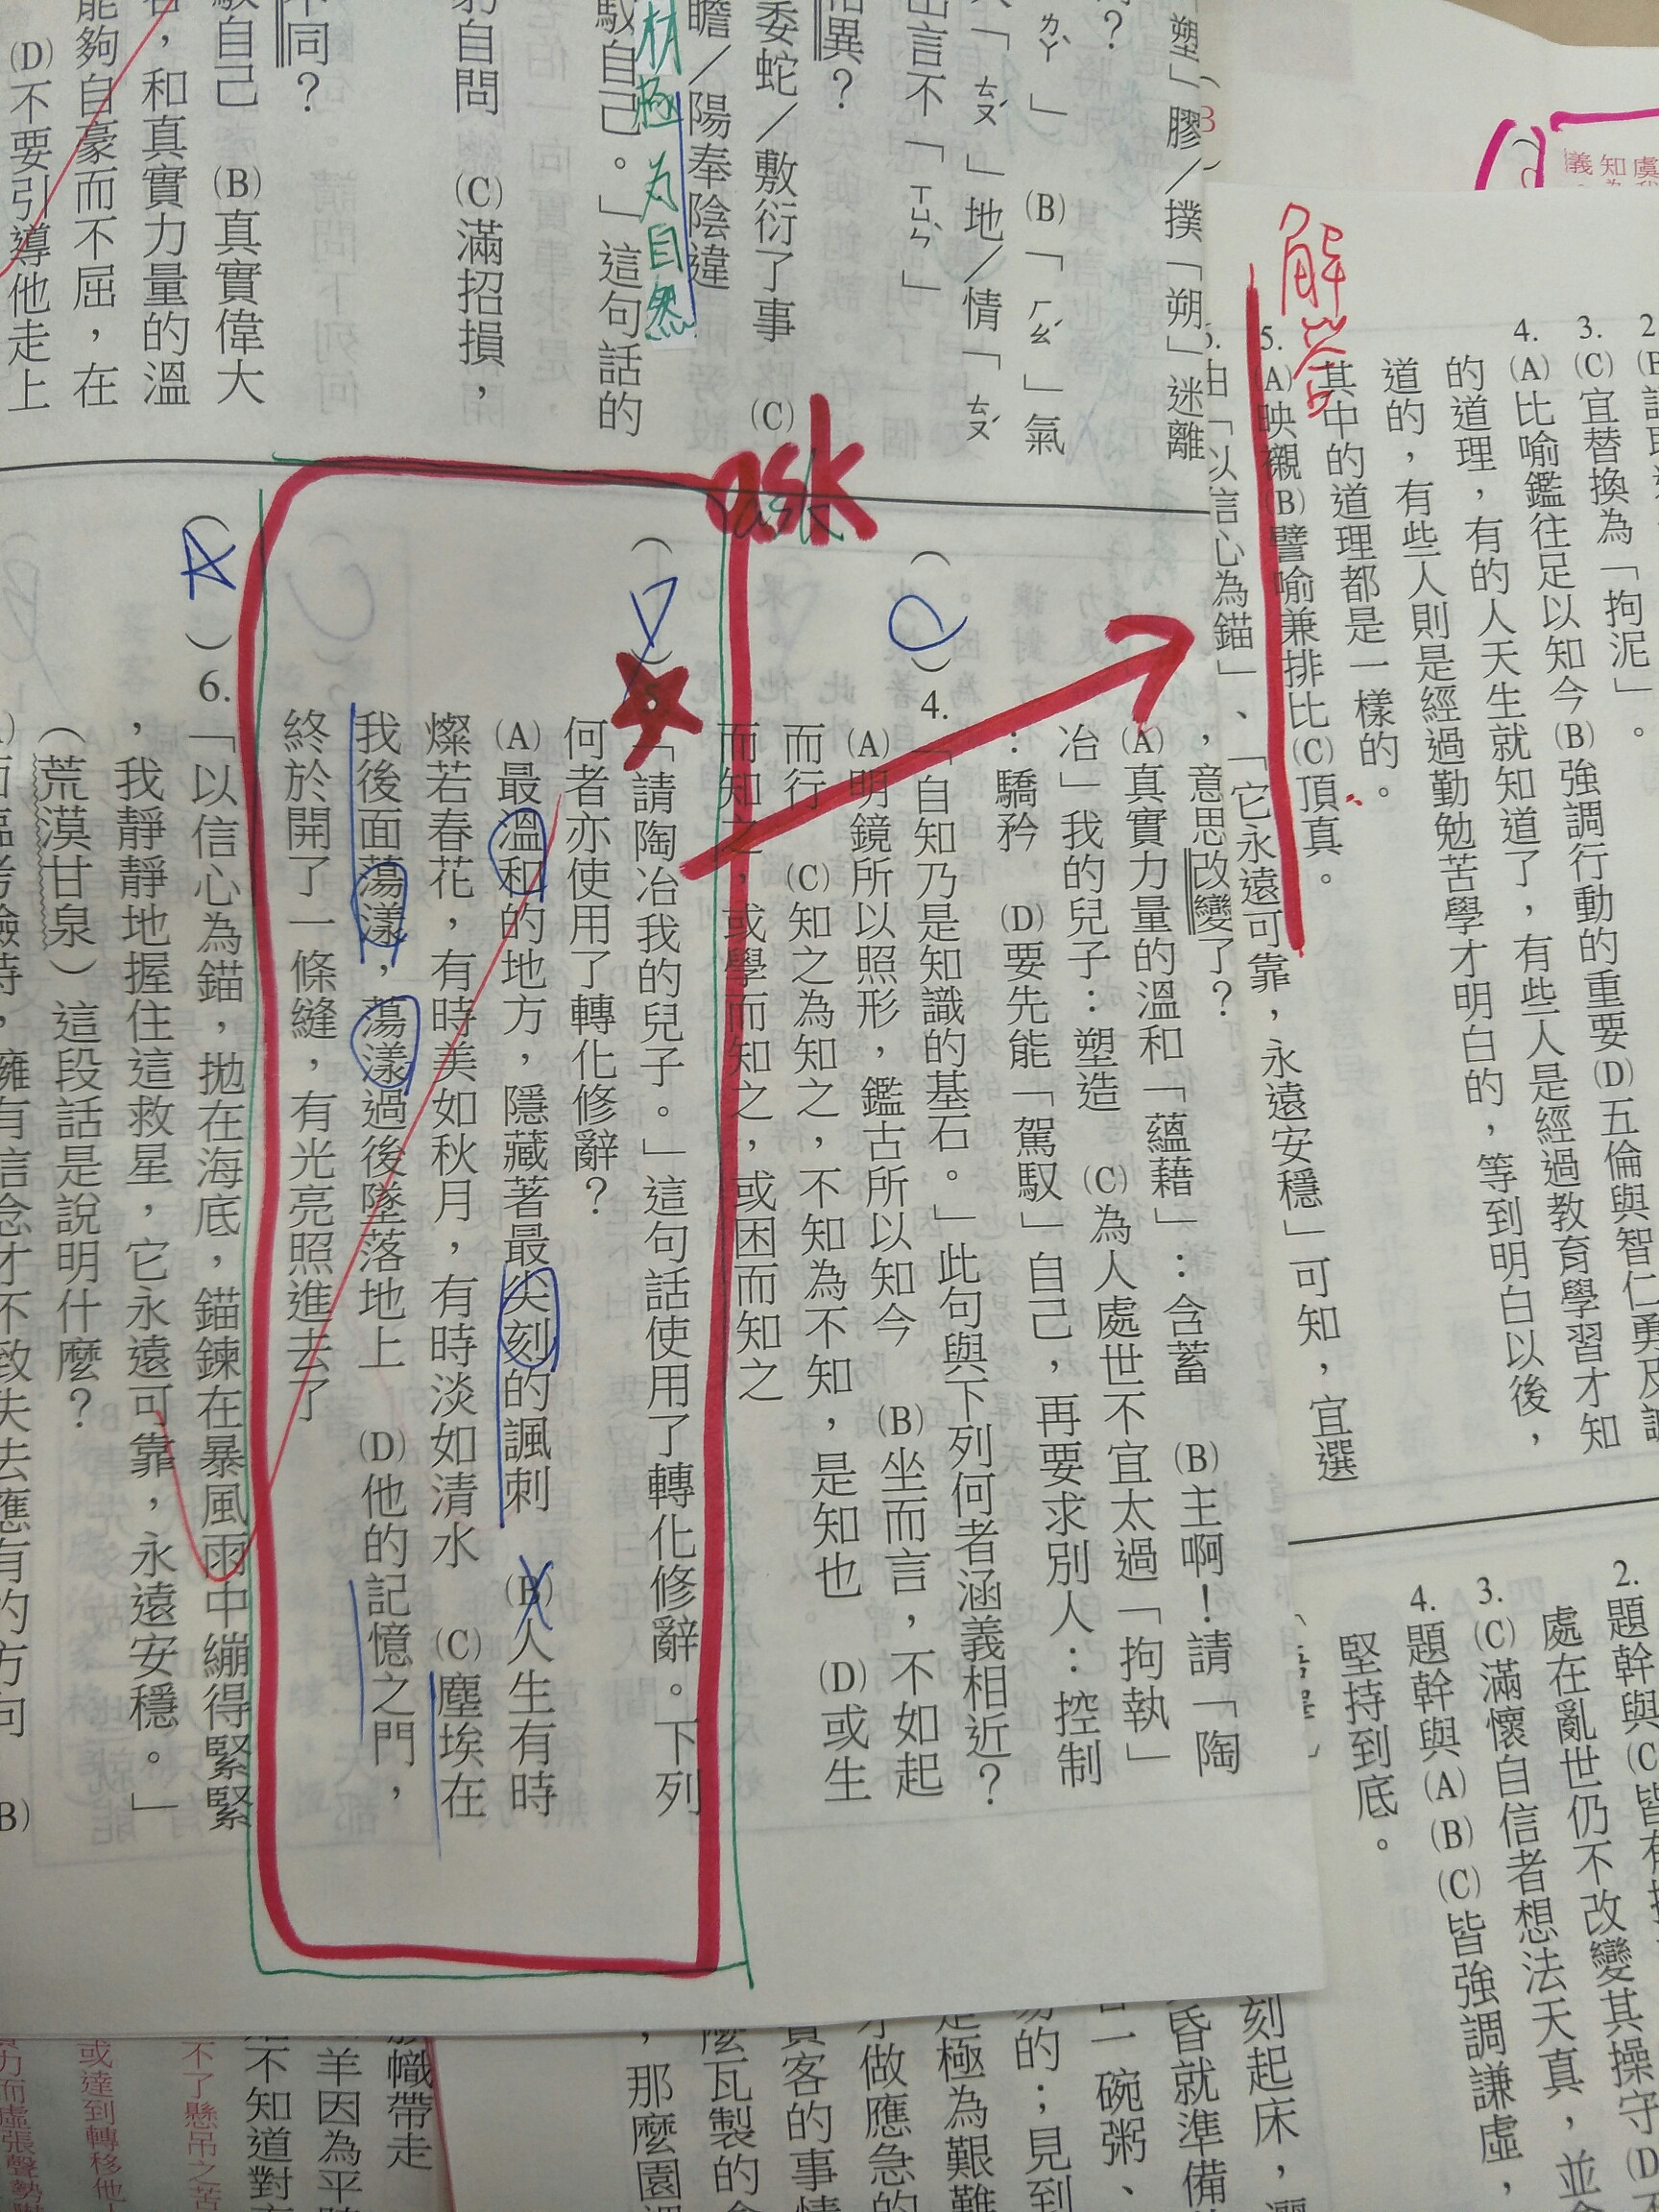 解答
2.
3.(C)宜替換為「拘泥」。
4.(A)比喻鑑往足以知今(B)強調行動的重要(D)五倫與智仁勇及
的道理，有的人天生就知道了，有些人是經過教育學習才知
道的，有些人則是經過勤勉苦學才明白的，等到明白以後，
其中的道理都是一樣的。
5.(A)映襯(B)譬喻兼排比(C)頂真。
由「以信心為錨」、「它永遠可靠，永遠安穩」可知，宜選
塑」膠／撲「朔」迷離
ㄌㄚˋ」 (B)「ㄏㄠˋ」氣
「ㄊㄡˊ」地／情「ㄊㄡˊ
出言不「ㄒㄩㄣˋ」
相異？
委蛇／敷衍了事 (C)
瞻／陽奉陰違
材極為自然
馭自己。」這句話的
自問 (C)滿招損，
不同？
自己 (B)真實偉大
，和真實力量的溫
能夠自豪而不屈，在
(D)不要引導他走上
，意思改變了？
(A)真實力量的溫和「蘊藉」：含蓄 (B)主啊！請「陶
冶」我的兒子：塑造 (C)為人處世不宜太過「拘執」
：驕矜 (D)要先能「駕馭」自己，再要求別人：控制
( C ) 4.「自知乃是知識的基石。」此句與下列何者涵義相近？
(A)明鏡所以照形，鑑古所以知今 (B)坐而言，不如起
而行 (C)知之為知之，不知為不知，是知也 (D)或生
而知之，或學而知之，或困而知之
ask
ask
( D ) 5.「請陶冶我的兒子。」這句話使用了轉化修辭。下列
何者亦使用了轉化修辭？
(A)最溫和的地方，隱藏著最尖刻的諷刺 (B)人生有時
燦若春花，有時美如秋月，有時淡如清水 (C)塵埃在
我後面蕩漾，蕩漾過後墜落地上 (D)他的記憶之門，
終於開了一條縫，有光亮照進去了
( A ) 6.「以信心為錨，拋在海底，錨鍊在暴風雨中繃得緊緊
，我靜靜地握住這救星，它永遠可靠，永遠安穩。」
（荒漠甘泉）這段話是說明什麼？
擁有信念才不致失去應有的方向 (B)
2.題幹與(C)皆有
處在亂世仍不改變其操守(D)
3.(C)滿懷自信者想法天真，並
4.題幹與(A)(B)(C)皆強調謙虛，
堅持到底。
刻起床，
昏就準備
一碗粥、
易的；見到
是極為艱難
才做應急的
賓客的事情
麼瓦製的
，那麼園
幟帶走
羊因為平
不知道對
不了懸吊之苦
或達到轉移他
力而虛張聲勢